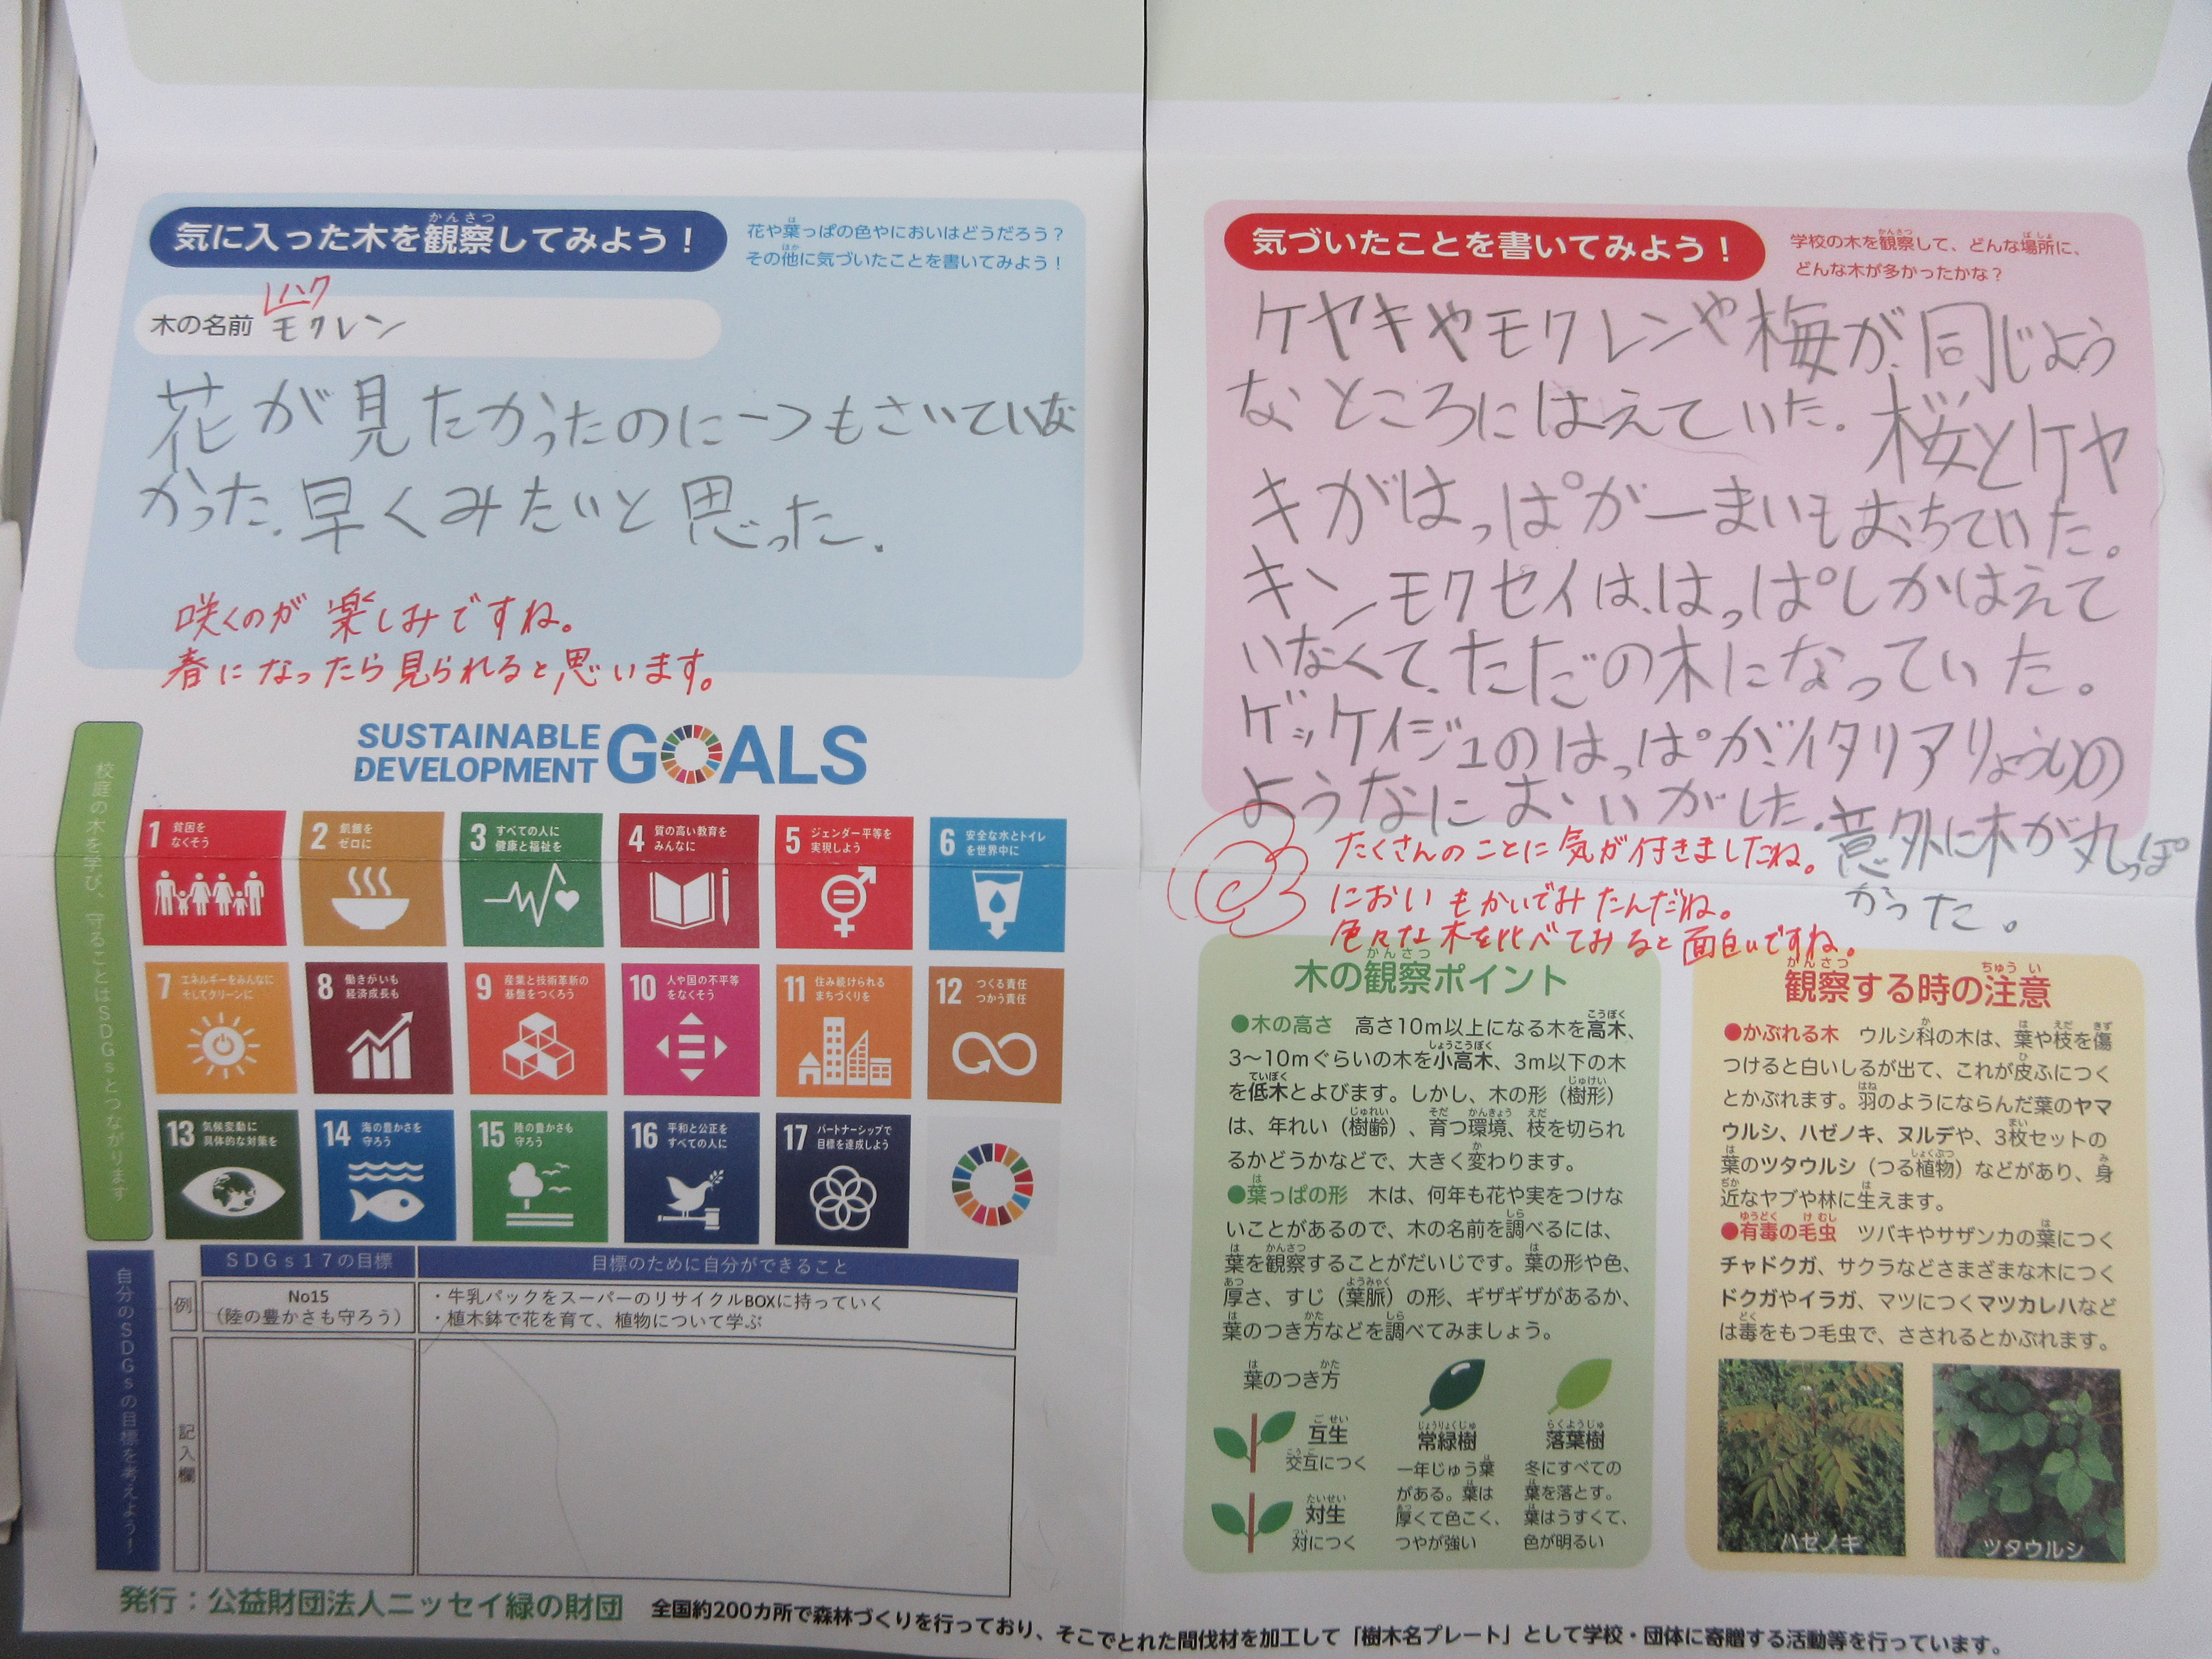 気に入った木を観察してみよう！
花や葉っぱの色やにおいはどうだろう？
その他に気づいたことを書いてみよう！
ハク
木の名前 モクレン
花が見たかったのに一つもさいていな
かった.早くみたいと思った.
咲くのが楽しみですね。
春になったら見られると思います。
気づいたことを書いてみよう！
学校の木を観察して、どんな場所に、
どんな木が多かったかな？
ケヤキやモクレンや梅が同じよう
なところにはえていた.桜とケヤ
キがはっぱが一まいもおちていた。
キンモクセイは、はっぱしかはえて
いなくて、ただの木になっていた。
ゲッケイジュのはっぱがイタリアりょうりの
ようなにおいがした.意外に木が丸っぽ
かった。
たくさんのことに気が付きましたね。
においもかいでみたんだね。
色々な木を比べてみると面白いですね。
校庭の木を学び、守ることはSDGsとつながります
SUSTAINABLE
DEVELOPMENT GOALS
1 貧困を
なくそう
2 飢餓を
ゼロに
3 すべての人に
健康と福祉を
4 質の高い教育を
みんなに
5 ジェンダー平等を
実現しよう
6 安全な水とトイレ
を世界中に
7 エネルギーをみんなに
そしてクリーンに
8 働きがいも
経済成長も
9 産業と技術革新の
基盤をつくろう
10 人や国の不平等
をなくそう
11 住み続けられる
まちづくりを
12 つくる責任
つかう責任
13 気候変動に
具体的な対策を
14 海の豊かさを
守ろう
15 陸の豊かさも
守ろう
16 平和と公正を
すべての人に
17 パートナーシップで
目標を達成しよう
自分のSDGsの目標を考えよう！
SDGs17の目標
目標のために自分ができること
例
No15
（陸の豊かさも守ろう）
・牛乳パックをスーパーのリサイクルBOXに持っていく
・植木鉢で花を育て、植物について学ぶ
記入欄
木の観察ポイント
●木の高さ 高さ10m以上になる木を高木、
3～10mぐらいの木を小高木、3m以下の木
を低木とよびます。しかし、木の形（樹形）
は、年れい（樹齢）、育つ環境、枝を切られ
るかどうかなどで、大きく変わります。
●葉っぱの形 木は、何年も花や実をつけな
いことがあるので、木の名前を調べるには、
葉を観察することがだいじです。葉の形や色、
厚さ、すじ（葉脈）の形、ギザギザがあるか、
葉のつき方などを調べてみましょう。
葉のつき方
互生
交互につく
対生
対につく
常緑樹
一年じゅう葉
がある。葉は
厚くて色こく、
つやが強い
落葉樹
冬にすべての
葉を落とす。
葉はうすくて、
色が明るい
観察する時の注意
●かぶれる木 ウルシ科の木は、葉や枝を傷
つけると白いしるが出て、これが皮ふにつく
とかぶれます。羽のようにならんだ葉のヤマ
ウルシ、ハゼノキ、ヌルデや、3枚セットの
葉のツタウルシ（つる植物）などがあり、身
近なヤブや林に生えます。
●有毒の毛虫 ツバキやサザンカの葉につく
チャドクガ、サクラなどさまざまな木につく
ドクガやイラガ、マツにつくマツカレハなど
は毒をもつ毛虫で、さされるとかぶれます。
ハゼノキ
ツタウルシ
発行：公益財団法人ニッセイ緑の財団
全国約200カ所で森林づくりを行っており、そこでとれた間伐材を加工して「樹木名プレート」として学校・団体に寄贈する活動等を行っています。